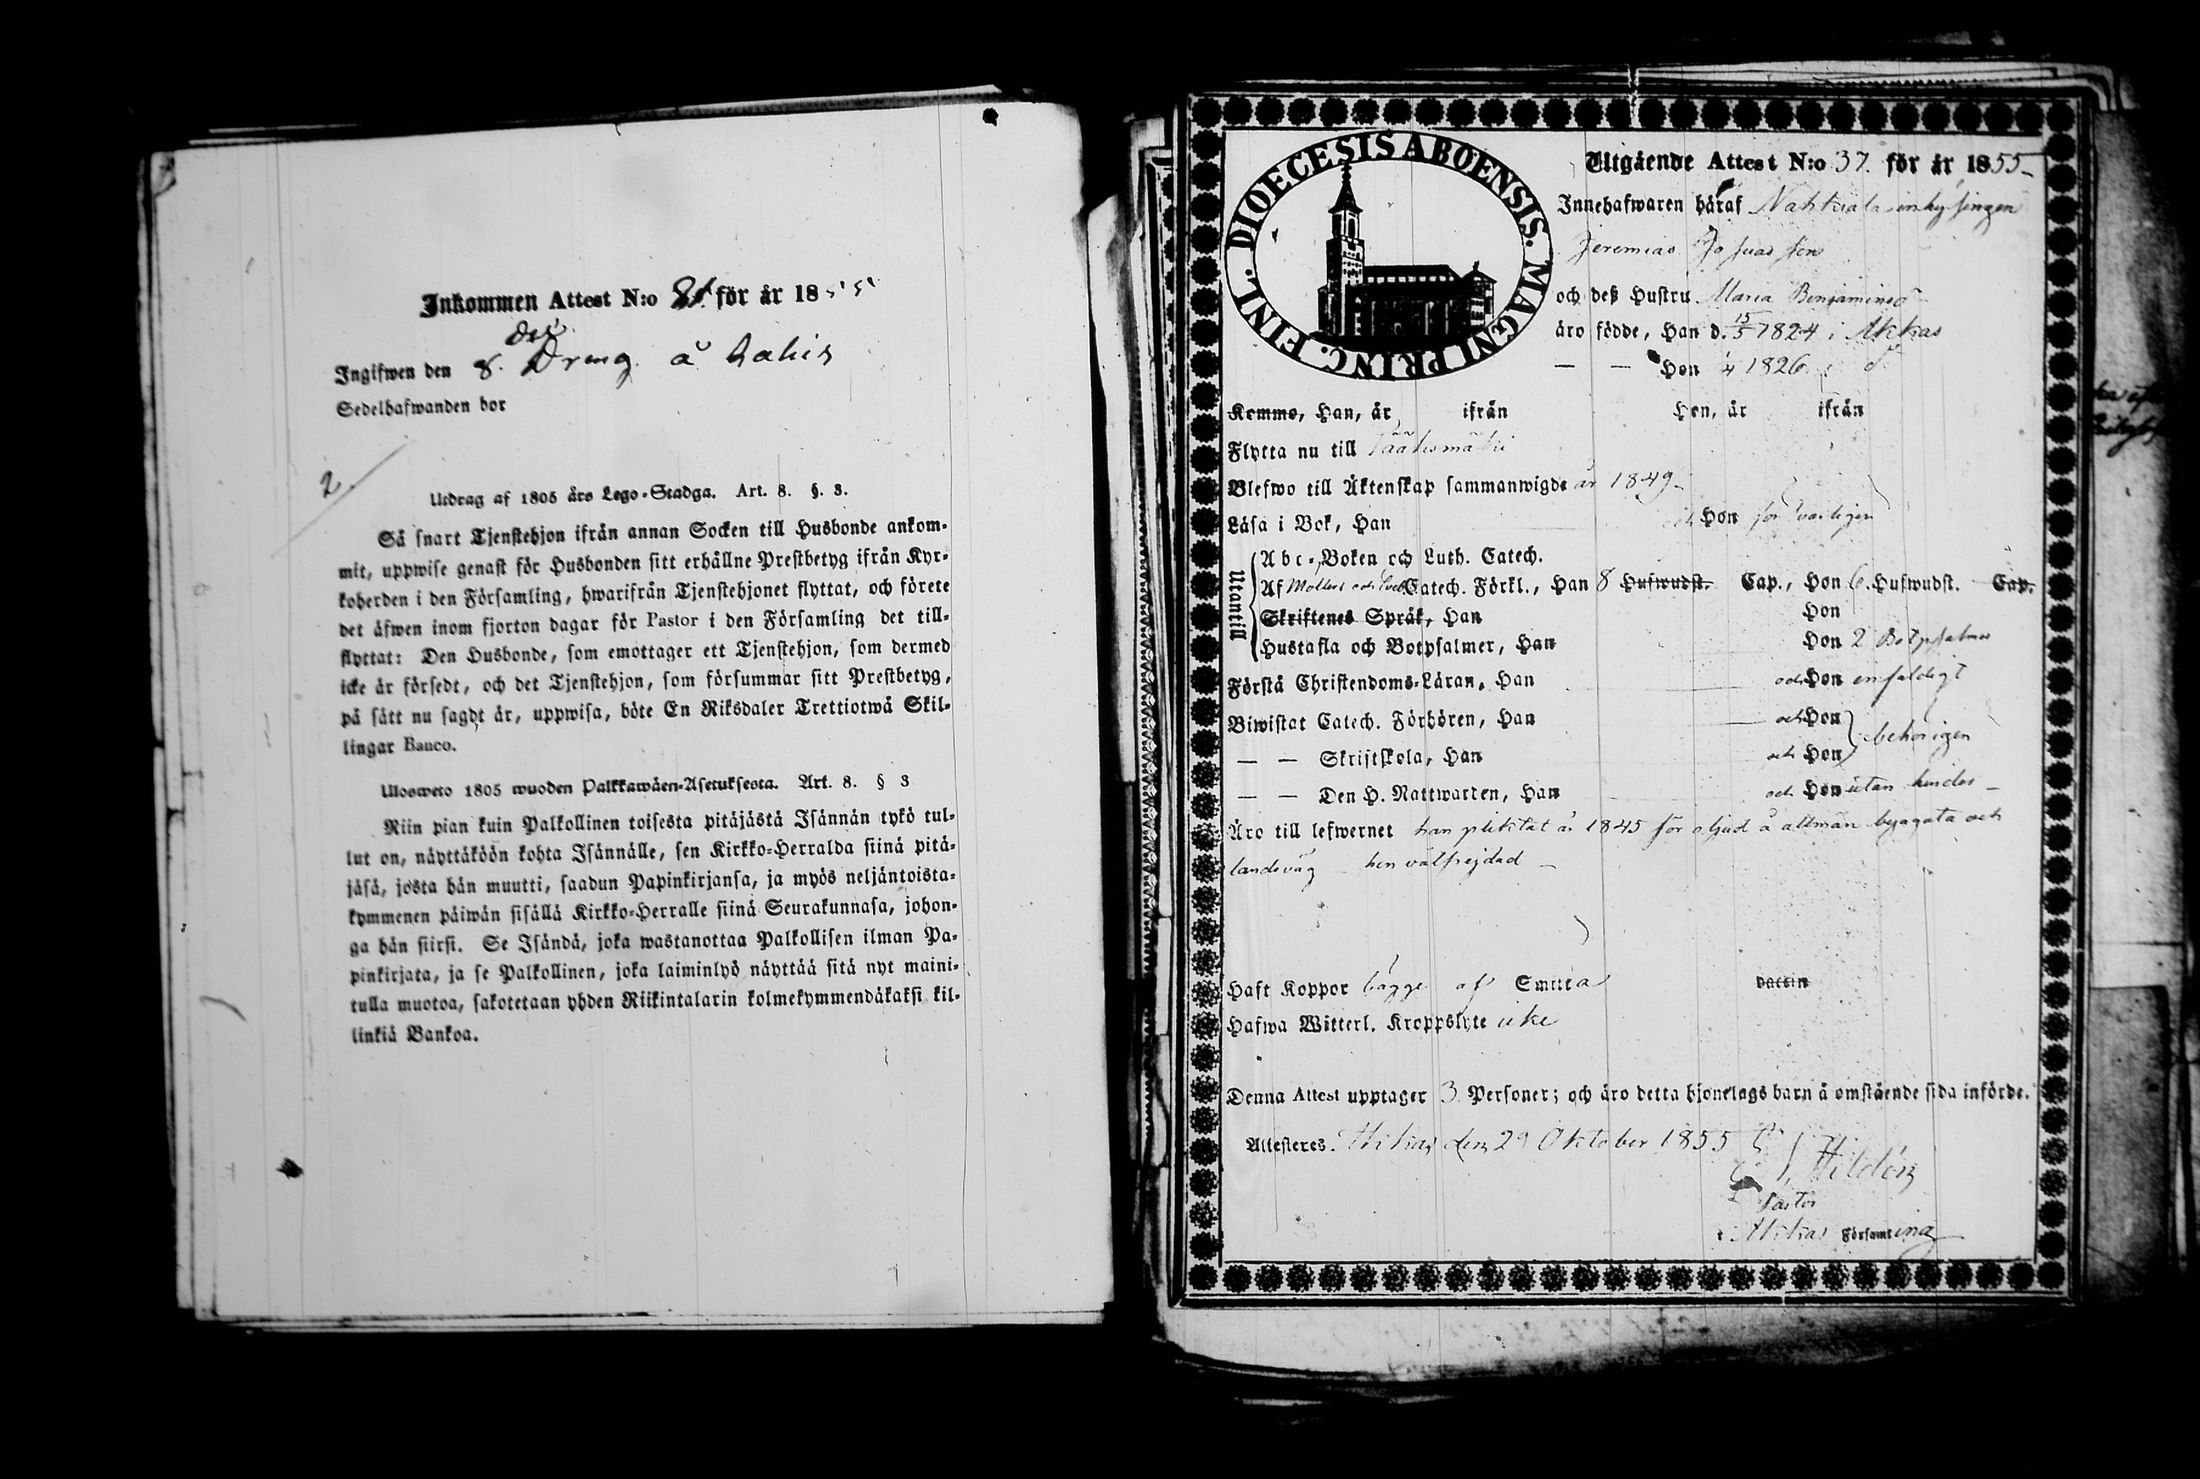 Inkommen Attest N:o 81. för år 1855
Ingifwen den 8. Dec. Dreng å
Sedelhafwanden bor
2.
Utdrag af 1805 års Lego-Stadga. Art. 8. §. 3.
Så snart Tjenstehjon ifrån annan Socken till Husbonde ankom-
mit, uppwise genast för Husbonden sitt erhållne Prestbetyg ifrån Kyr-
koherden i den Församling, hwarifrån Tjenstehjonet flyttat, och förete
det äfwen inom fjorton dagar för Pastor i den Församling det till-
flyttat: Den Husbonde, som emottager ett Tjenstehjon, som dermed
icke är försedt, och det Tjenstehjon, som försummar sitt Prestbetyg,
på sätt nu sagdt är, uppwisa, böte En Riksdaler Trettiotwå Skil-
lingar Banco.
Ulosweto 1805 wuoden Palkkawäen-Asetuksesta. Art. 8. § 3
Niin pian kuin Palkollinen toisesta pitäjästä Isännän tykö tul-
lut on, näyttäköön kohta Isännälle, sen Kirkko-Herralda siinä pitä-
jäsä, josta hän muutti, saadun Papinkirjansa, ja myös neljäntoista-
kymmenen päiwän sisällä Kirkko-Herralle siinä Seurakunnasa, johon-
ga hän siirsi. Se Isändä, joka wastanottaa Palkollisen ilman Pa-
pinkirjata, ja se Palkollinen, joka laiminlyö näyttää sitä nyt maini-
tulla muotoa, sakotetaan yhden Riikintalarin kolmekymmendäkaksi kil-
linkiä Bankoa.
FINL. DIOECESIS ABOENSIS. MAGNI PRINC.
Utgående Attest N:o 37. för år 1855
Innehafwaren häraf Nahkiala inhysingen
Jeremias Josuasson
och deß Hustru Maria Benjaminsd
äro födde, Han d. 15/5 1824 i Akkas
— — Hon 1826 i d:o
Komme, Han, år ifrån Hon, år ifrån
Flytta nu till Sääksmäki
Blefwo till Äktenskap sammanwigde år 1849
Läsa i Bok, Han och Hon försvarligen
Utantill
Abc-Boken och Luth. Catech.
Af Möllers och Catech. Förkl., Han 8 Hufwudst. Cap., Hon 6 Hufwudst. Cap.
Skriftenes Språk, Han Hon
Hustafla och Botpsalmer, Han Hon 2 Botpsalmer
Förstå Christendoms-Läran, Han och Hon enfaldigt
Biwistat Catech. Förhören, Han och Hon
— — Skriftskola, Han och Hon behörigen
— — Den H. Nattwarden, Han och Hon utan hinder
Äro till lefwernet han pliktat år 1845 för oljud å allmän byagata och
landsväg hon välfrejdad
Haft Koppor bägge af Smitta Vaccin
Hafwa Witterl. Kroppslyte icke
Denna Attest upptager 3 Personer; och äro detta hjonelags barn å omstående sida införde.
Attesteres. Akkas den 29 Oktober 1855
Hildén
Pastor
i Akkas Församling